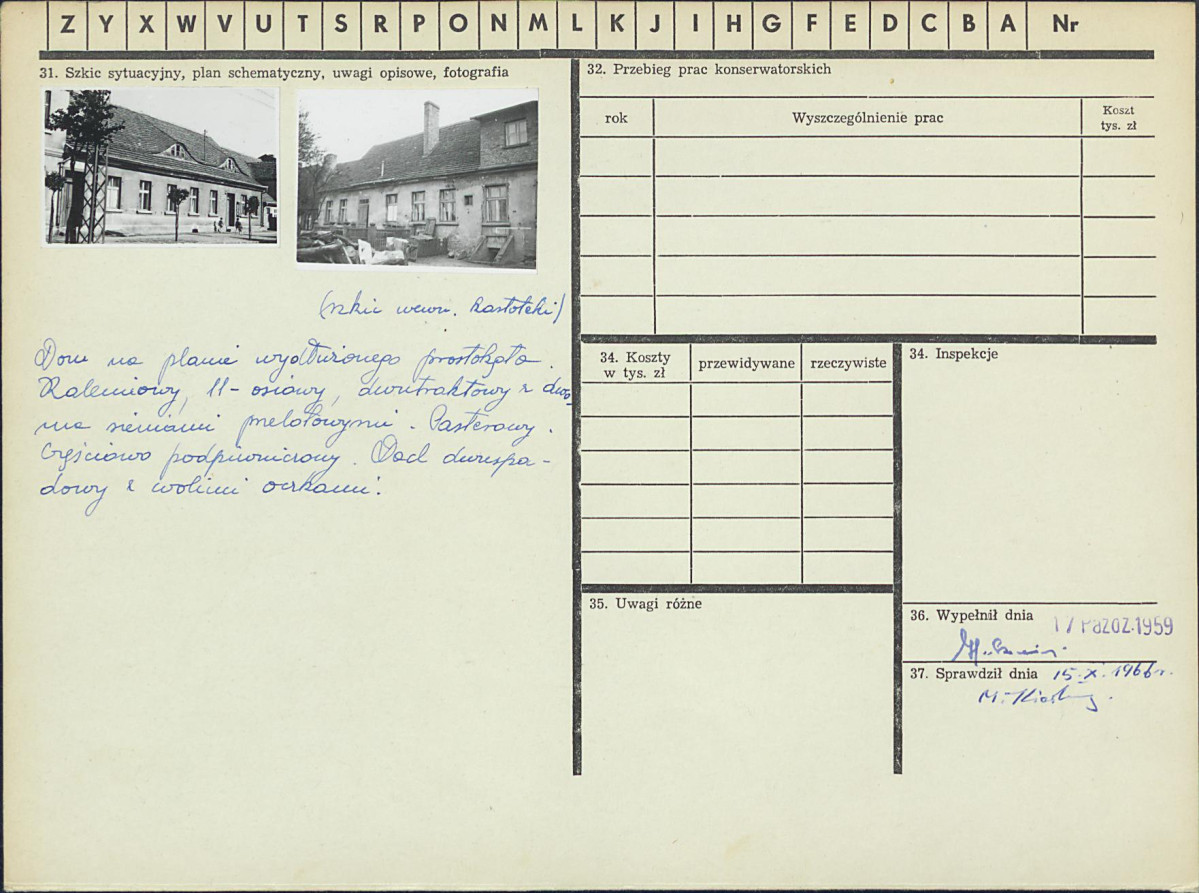 Z Y X W V U T S R P O N M L K J I H G F E D C B A Nr
31. Szkic sytuacyjny, plan schematyczny, uwagi opisowe, fotografia
(szkic wewn. kartoteki)
Dom na planie wydłużonego prostokąta.
Kalenicowy, 11-osiowy, dwutraktowy z dwo-
ma sieniami przelotowymi. Parterowy.
Częściowo podpiwniczony. Dach dwuspa-
dowy z wolimi oczkami.
32. Przebieg prac konserwatorskich
rok
Wyszczególnienie prac
Koszt
tys. zł
34. Koszty
w tys. zł
przewidywane
rzeczywiste
34. Inspekcje
35. Uwagi różne
36. Wypełnił dnia 17 PAŹDZ. 1959
37. Sprawdził dnia 15.X.1966r.